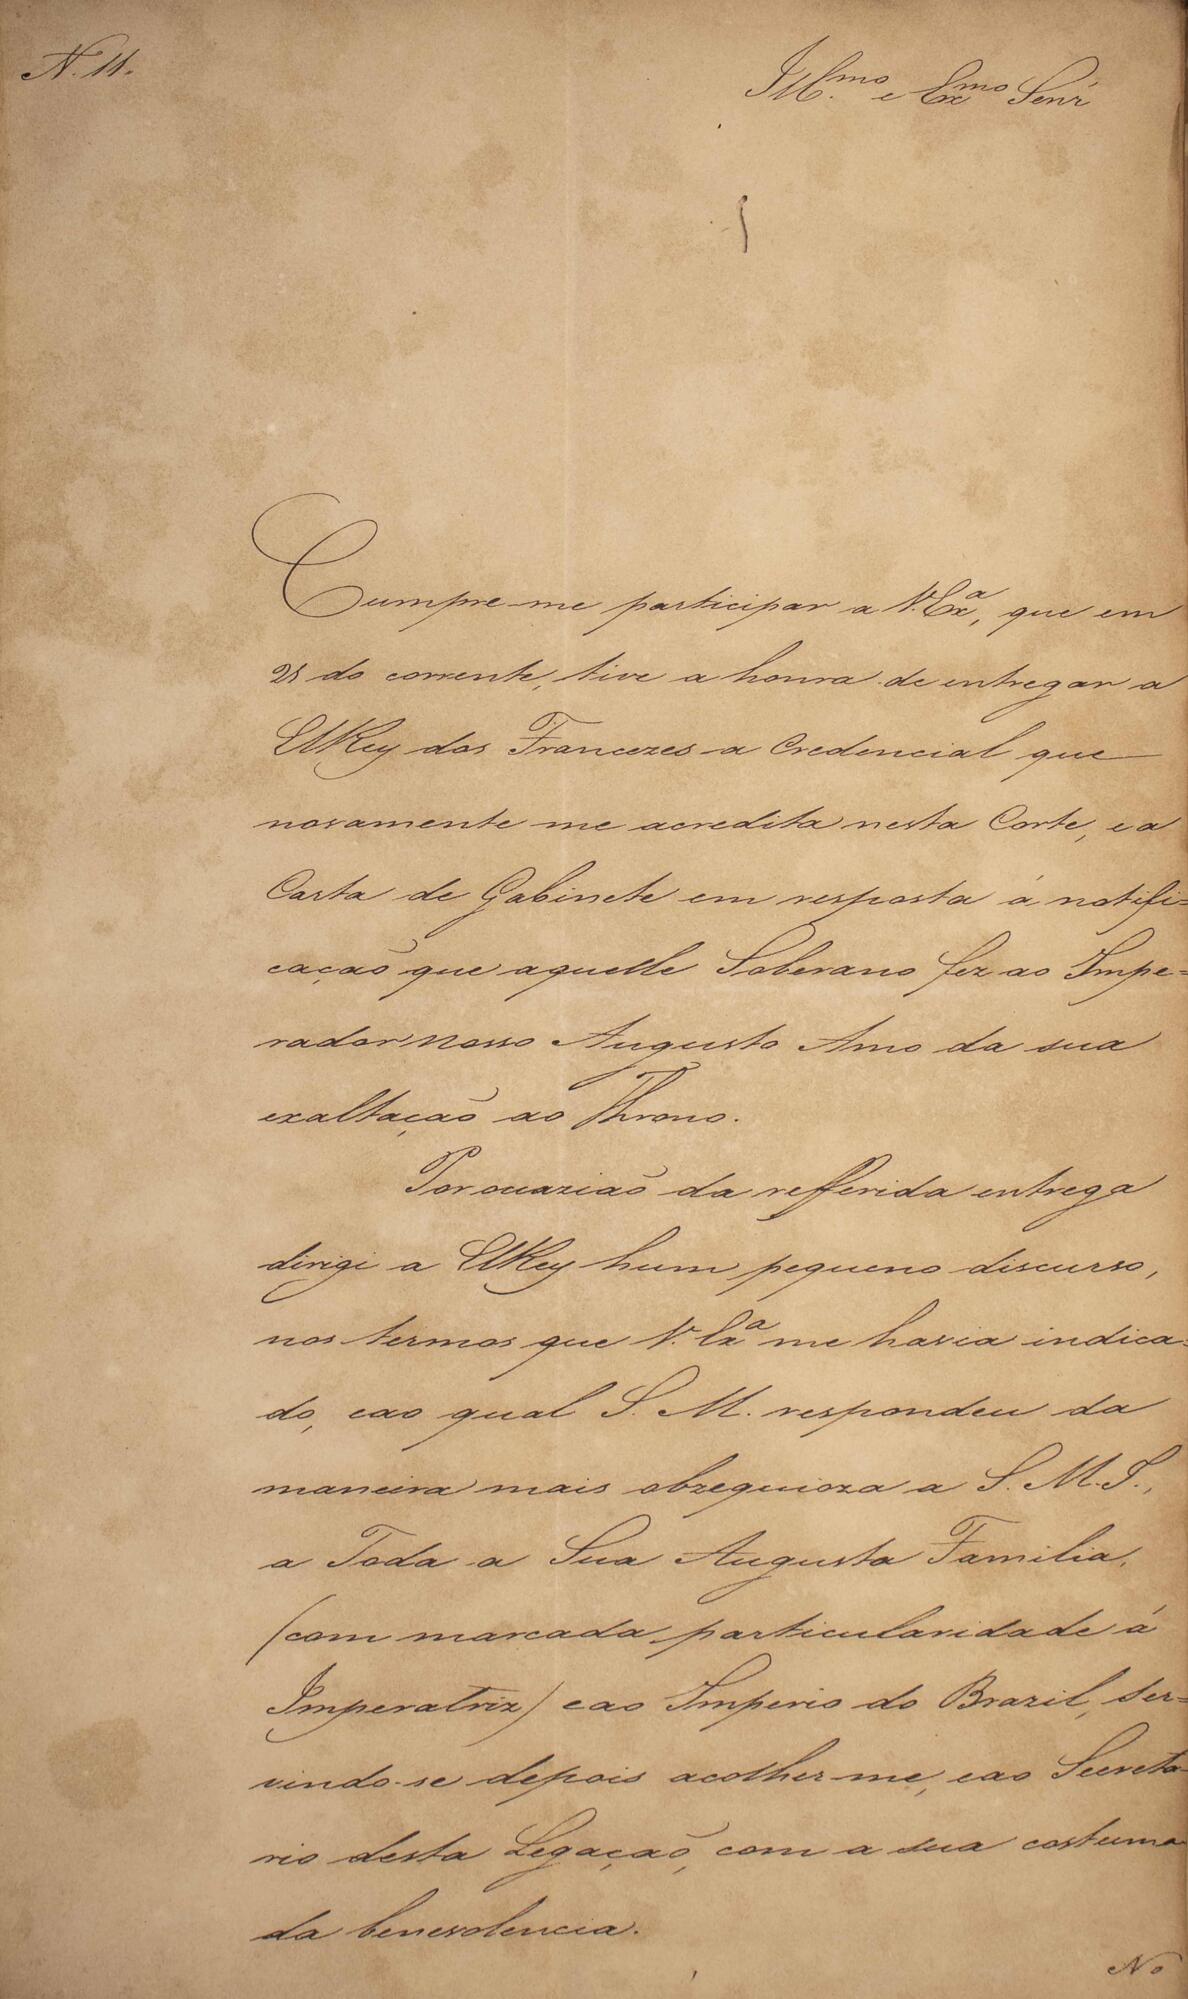 N. 11.
Ill.mo e Ex.mo Senr
Cumpre-me participar a V. Ex.a, que em
21 do corrente, tive a honra de entregar a
ElRey dos Francezes a Credencial que
novamente me acredita nesta Corte, e a
Carta de Gabinete em resposta á notifi=
cação que aquelle Soberano fez ao Impe=
rador nosso Augusto Amo da sua
exaltação ao Throno.
Por ouazião da refferida entrega
dirigi a ElRey hum pequeno discurso,
nos termos que V. Ex.a me havia indica=
do, e ao qual S. M. respondeu da
maneira mais obzequioza a S. M. I.,
a Toda a Sua Augusta Familia,
(com marcada particularidade á
Imperatriz) e ao Imperio do Brazil, ser=
vindo-se depois acolher-me, e ao Secreta=
rio desta Legação, com a sua costuma
da benevolencia.
No